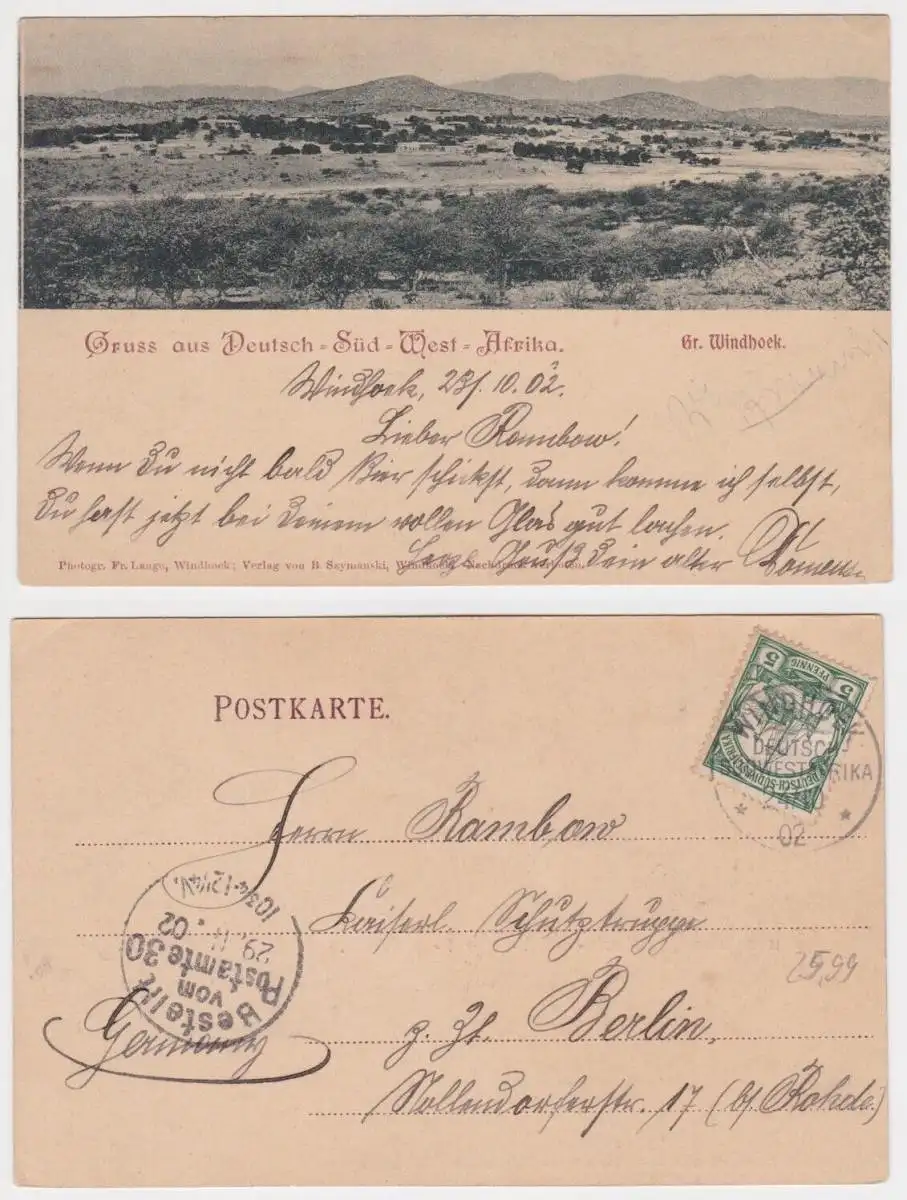 Gruss aus Deutsch-Süd-West-Afrika. Gr. Windhoek.
Windhoek, 23/10.02.
Lieber Rambow!
Wenn Du nicht bald Bier schickst, dann komme ich selbst,
Du hast jetzt bei Deinem vollen Glas gut lachen.
Gruß Dein alter
Photogr. Fr. Lange, Windhoek; Verlag von B. Szymanski, Windhoek. Nachdruck verboten.
POSTKARTE.
5 5
PFENNIG
DEUTSCH-SÜDWESTAFRIKA
WINDHOEK
DEUTSCH
SÜDWESTAFRIKA
02
Herrn Rambow
Kaiserl. Schutztruppe
z. Zt. Berlin,
Nollendorferstr. 17 (bei Rohde)
Germany
Bestellt
vom
Postamte 30
29. 11. 02
10¾-12¼N.
25,99